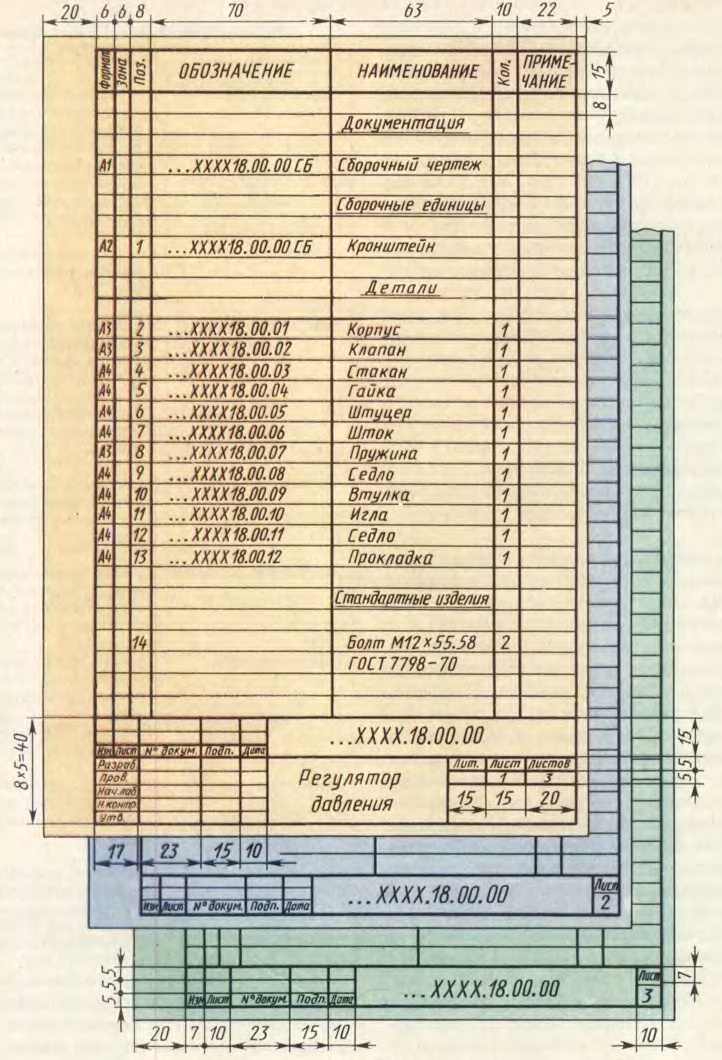 20 6 6 8 70 63 10 22 5
Формат Зона Поз. ОБОЗНАЧЕНИЕ НАИМЕНОВАНИЕ Кол. ПРИМЕ-
ЧАНИЕ
15
8
Документация
А1 ...XXXX18.00.00 СБ Сборочный чертеж
Сборочные единицы
А2 1 ...XXXX18.00.00 СБ Кронштейн
Детали
А3 2 ...XXXX18.00.01 Корпус 1
А3 3 ...XXXX18.00.02 Клапан 1
А4 4 ...XXXX18.00.03 Стакан 1
А4 5 ...XXXX18.00.04 Гайка 1
А4 6 ...XXXX18.00.05 Штуцер 1
А4 7 ...XXXX18.00.06 Шток 1
А3 8 ...XXXX18.00.07 Пружина 1
А4 9 ...XXXX18.00.08 Седло 1
А4 10 ...XXXX18.00.09 Втулка 1
А4 11 ...XXXX18.00.10 Игла 1
А4 12 ...XXXX18.00.11 Седло 1
А4 13 ...XXXX18.00.12 Прокладка 1
Стандартные изделия
14 Болт М12×55.58 2
ГОСТ 7798-70
8×5=40
...XXXX.18.00.00
15
Изм Лист № докум. Подп. Дата
Разраб.
Пров.
Нач.лаб.
Н.контр.
Утв.
Регулятор
давления
Лит. Лист Листов
1 3
15 15 20
5 5
17 23 15 10
Изм Лист № докум. Подп. Дата
...XXXX.18.00.00
Лист
2
5 5 5
Изм Лист № докум. Подп. Дата
...XXXX.18.00.00
Лист
3
7
20 7 10 23 15 10 10